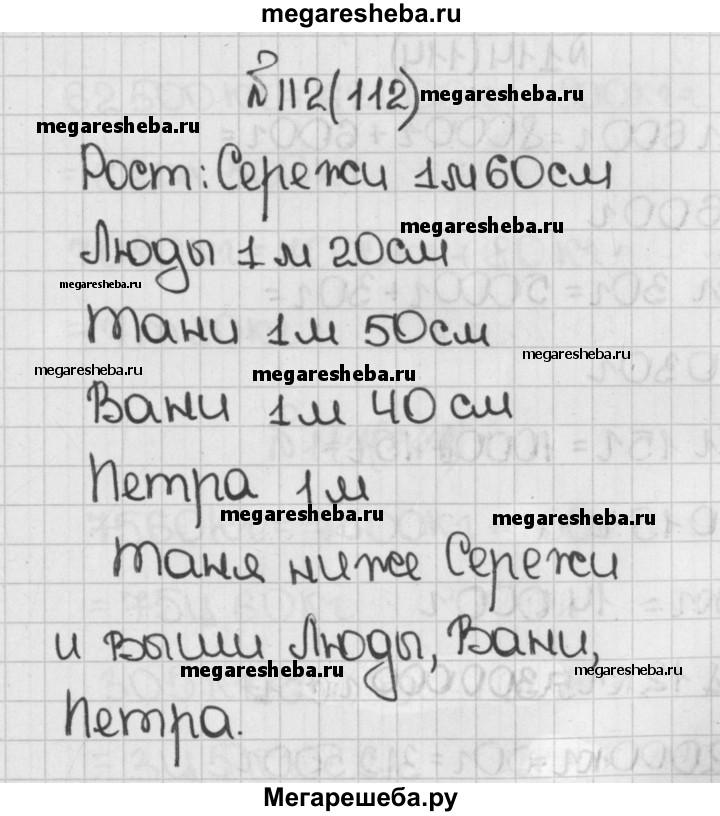 megaresheba.ru
№112(112) megaresheba.ru
megaresheba.ru
Рост: Сережи 1м 60см
megaresheba.ru
Люды 1м 20см
megaresheba.ru
Тани 1м 50см
megaresheba.ru
megaresheba.ru megaresheba.ru
Вани 1м 40см
Петра 1м
megaresheba.ru megaresheba.ru
Таня ниже Сережи
и выши Люды, Вани,
megaresheba.ru megaresheba.ru
Петра.
Мегарешеба.ру